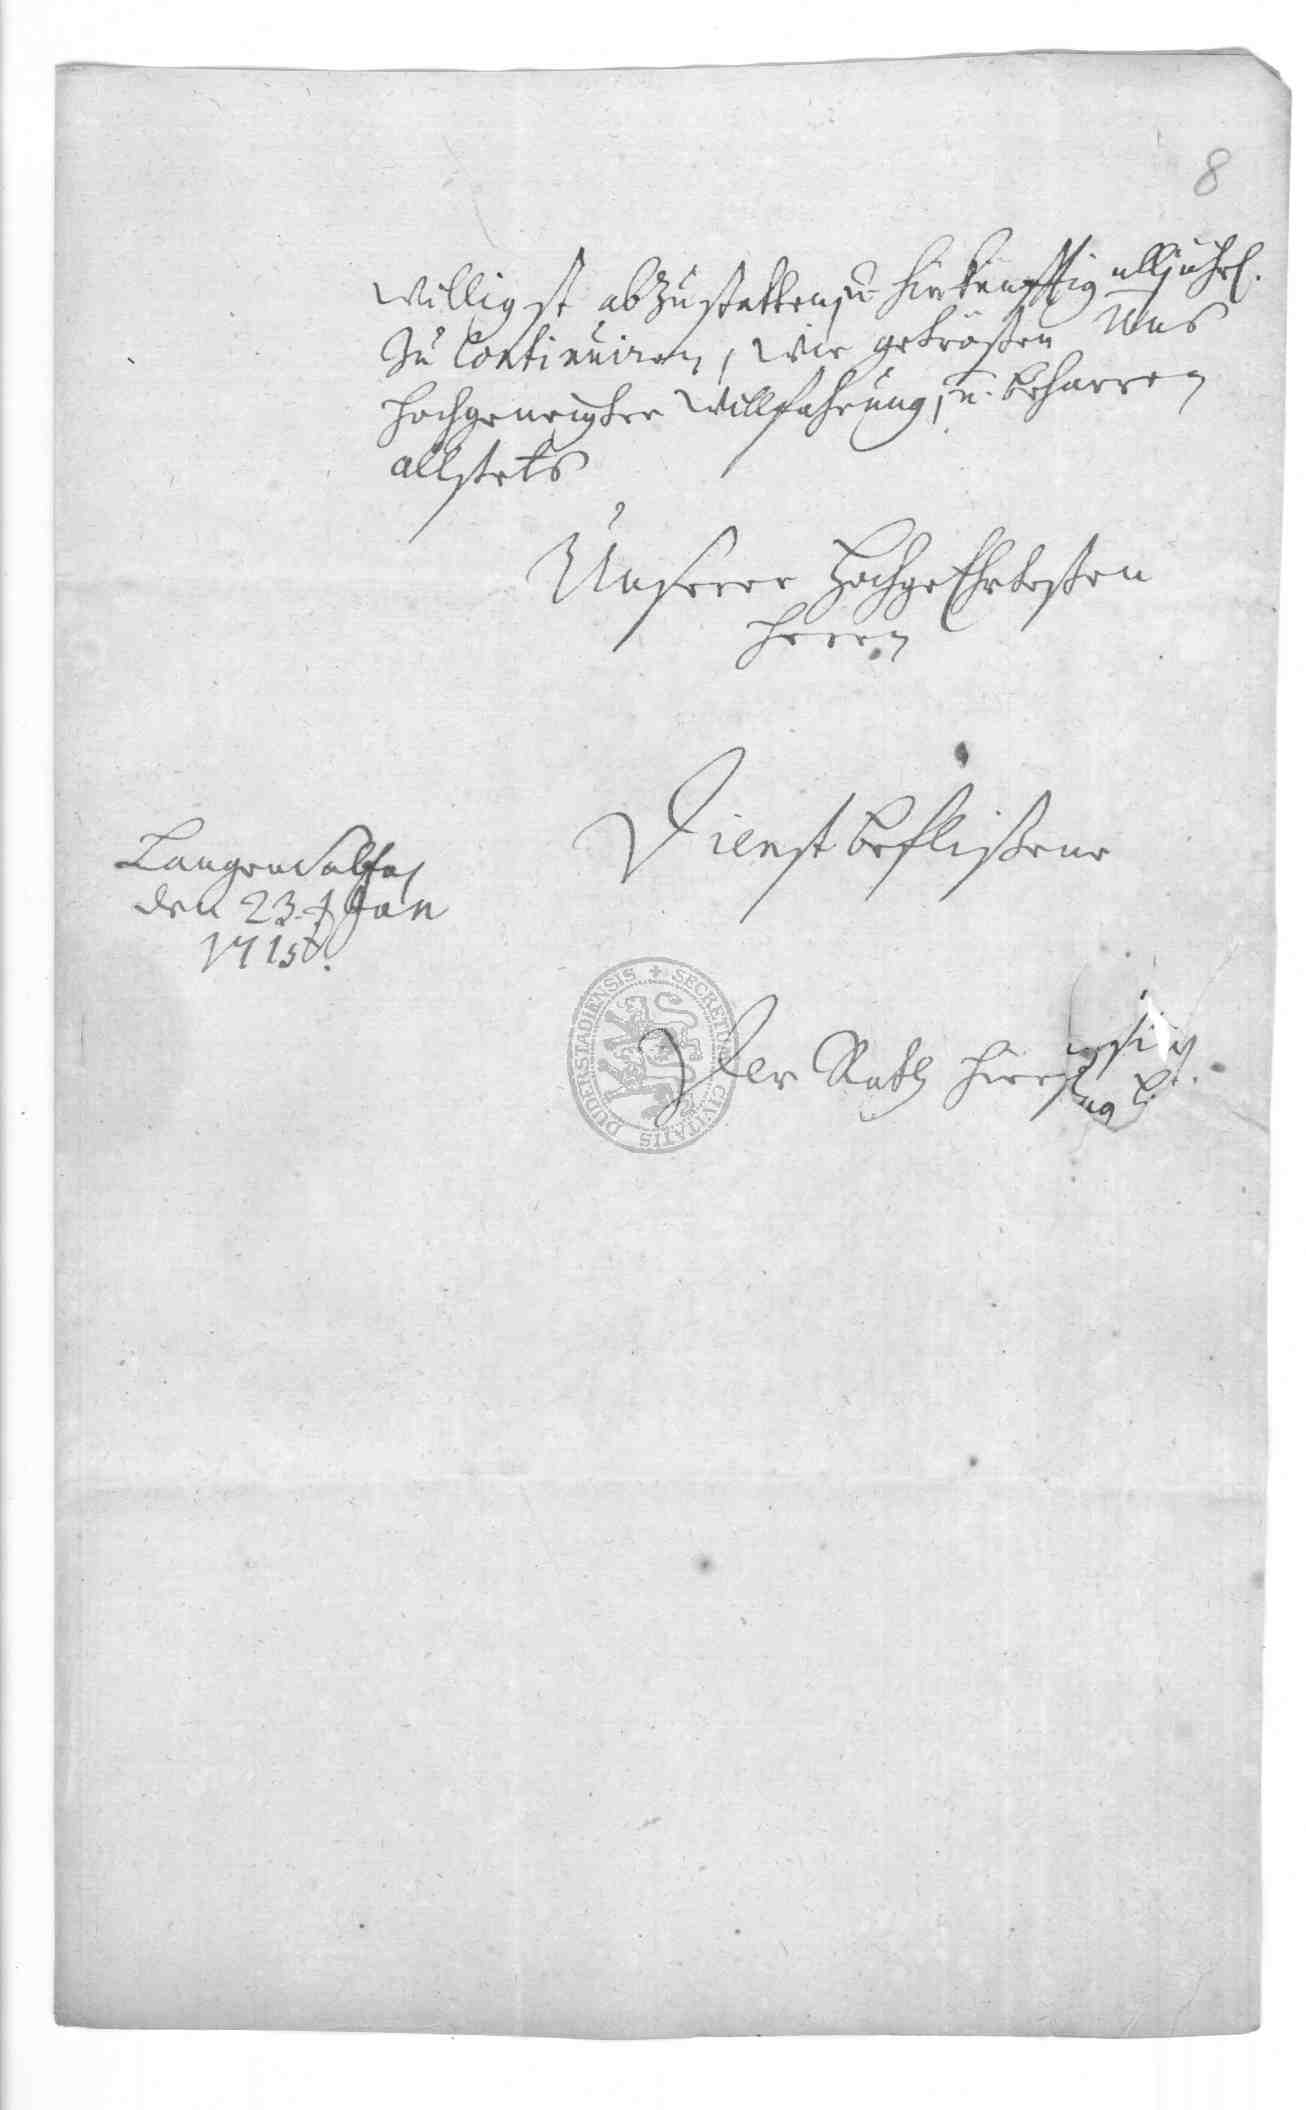 8
willigst abzustatten, u. hinkünfftig alljährl.
zu Continuiren, wir getrösten Uns
hochgeneigter Willfahrung, u. beharren
allstets
Unserer HochgeEhrtesten
Herren
Dienstbeflißene
LangenSaltza,
den 23. Jan
1715.
Der Rath hierselbst
DUDERSTADIENSIS + SECRETUS CIVITATIS